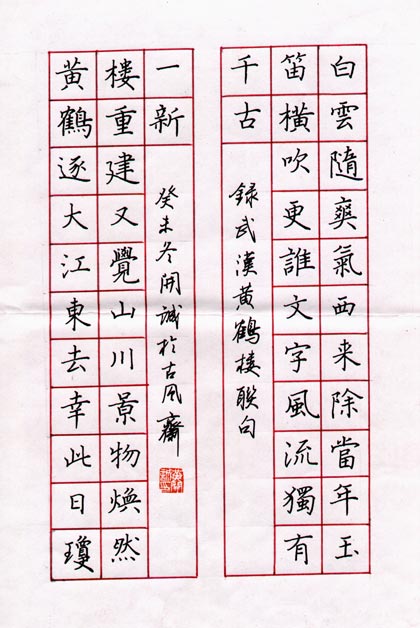 白雲隨爽氣西来除當年玉
笛橫吹更誰文字風流獨有
千古
録武漢黄鶴楼聯句
黄鶴逐大江東去幸此日瓊
楼重建又覺山川景物煥然
一新
癸未冬開誠於古风齋